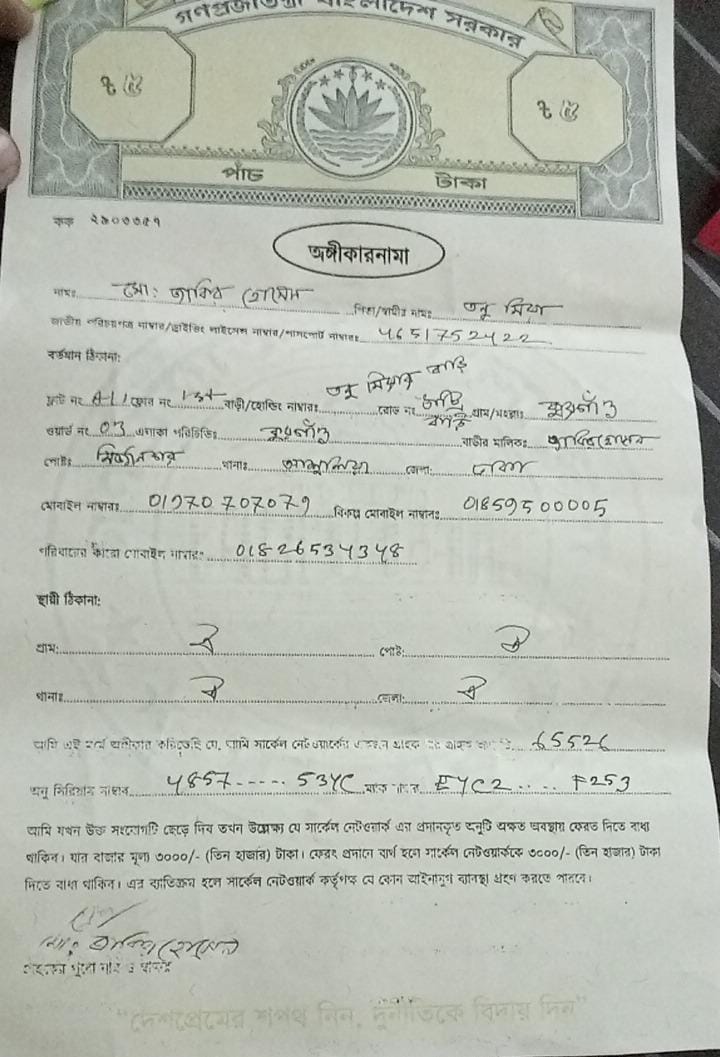 গণপ্রজাতন্ত্রী বাংলাদেশ সরকার
৳ ৫ ৳ ৫
পাঁচ টাকা
কক ২৯০০৩৫৭
অঙ্গীকারনামা
নামঃ মো: জাকির হোসেন পিতা/স্বামীর নামঃ তনু মিয়া
জাতীয় পরিচয়পত্র নাম্বার/ড্রাইভিং লাইসেন্স নাম্বার/পাসপোর্ট নাম্বারঃ 4651752422
বর্তমান ঠিকানা:
তনু মিয়ার বাড়ি
ফ্লাট নং A-1 ফ্লোর নং 1st বাড়ী/হোল্ডিং নাম্বারঃ রোড নং গ্রাম/মহল্লাঃ
ওয়ার্ড নং 03 এলাকা পরিচিতিঃ বাড়ীর মালিকঃ জাকির হোসেন
পোষ্টঃ থানাঃ আশুলিয়া জেলা: ঢাকা
মোবাইল নাম্বারঃ 01970707079 বিকল্প মোবাইল নাম্বারঃ 01859500005
পরিবারের কারো মোবাইল নাম্বারঃ 01826534348
স্থায়ী ঠিকানা:
গ্রাম: ঐ পোষ্ট: ঐ
থানাঃ ঐ জেলা: ঐ
আমি এই মর্মে অঙ্গীকার করিতেছি যে, আমি সার্কেল নেটওয়ার্কের একজন গ্রাহক 65526
অনু সিরিয়াল নাম্বার 4857----- 534C ম্যাক নাম্বার E4C2.... F253
আমি যখন উক্ত সংযোগটি ছেড়ে দিব তখন উল্লেক্ষ্য যে সার্কেল নেটওয়ার্ক এর প্রদানকৃত অনুটি অক্ষত অবস্থায় ফেরত দিতে বাধ্য
থাকিব। যার বাজার মূল্য ৩০০০/- (তিন হাজার) টাকা। ফেরৎ প্রদানে ব্যর্থ হলে সার্কেল নেটওয়ার্ককে ৩০০০/- (তিন হাজার) টাকা
দিতে বাধ্য থাকিব। এর ব্যতিক্রম হলে সার্কেল নেটওয়ার্ক কর্তৃপক্ষ যে কোন আইনানুগ ব্যবস্থা গ্রহণ করতে পারবে।
মো: জাকির হোসেন
গ্রাহকের পুরো নাম ও স্বাক্ষর
"দেশপ্রেমের শপথ নিন, দুর্নীতিকে বিদায় দিন"